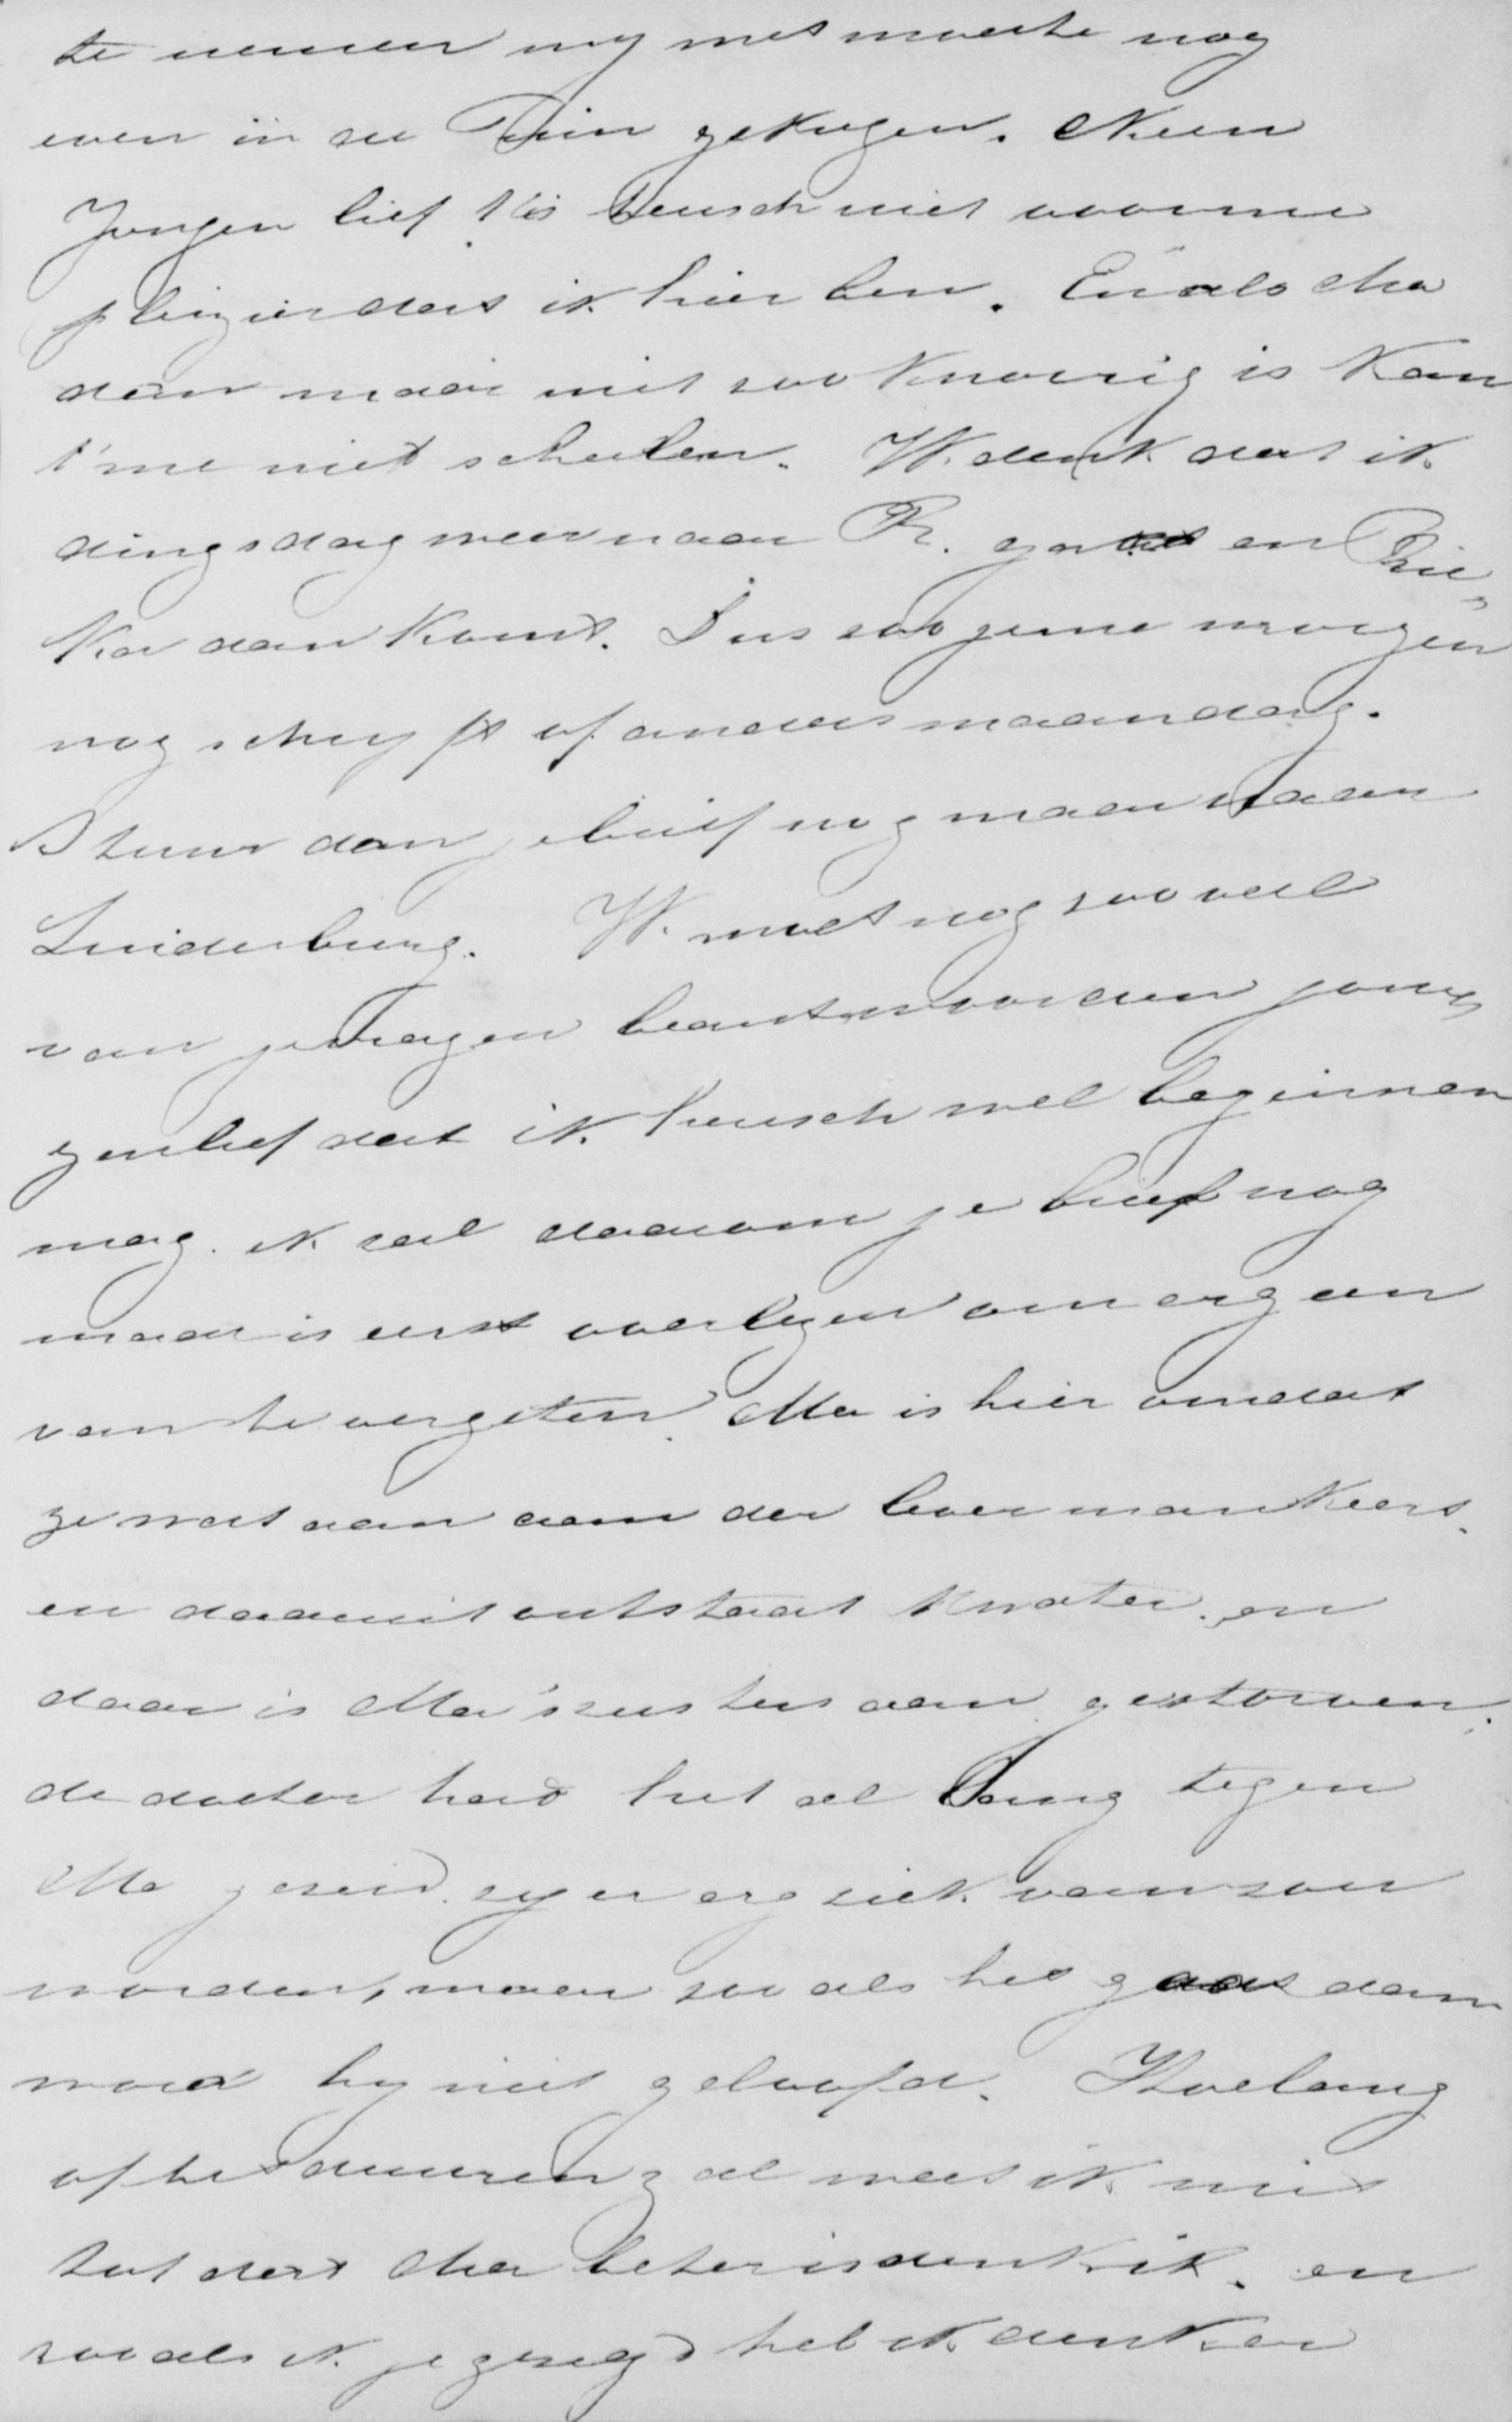 te nemen my met moeite nog
even in de Tuin gekregen. Neen
Jongen lief t'is heusch niet voor me
plezier dat ik hier ben. En als Ma
dan maar niet zoo knorrig is kan
t'me niet schelen. Ik denk dat ik
dingsdag weer naar R. ga en Rie-
ka dan komt. Dus zoo je me morgen
nog schryft of anders maandag.
Stuur dan je brief nog maar naar
Luiderburg. Ik moet nog zoo veel
van je vragen beantwoorden jon-
genlief dat ik heusch wel beginnen
mag. ik zal daarom je brief nog
maar is eerst overlezen om er geen
van te vergeten. Ma is hier omdat
ze wat aan aan der lever mankeert.
en daaruit ontstaat Kwater. en
daar is Ma's zuster aan gestorven.
de doctor had het al lang tegen
Ma gezeid. zy er erg ziek van zou
worden, maar zoo als het gaat dan
word hy niet geloofd. Hoelang
of het duuren zal weet ik niet
tot dat Ma beter is denk ik. en
zoo als ik je gezegd heb ik denk er